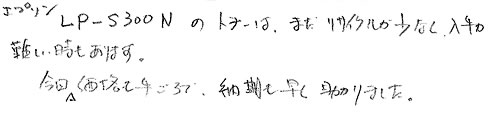 エプソン LP-S300N のトナーは、まだリサイクルが少なく、入手が
難しい時もあります。
今回、価格も手ごろで、納期も早く助かりました。